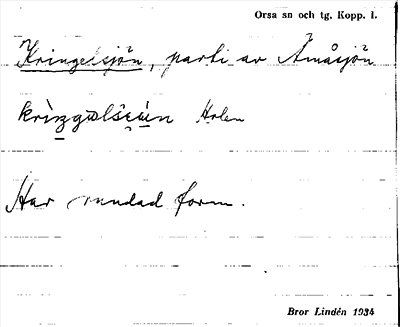 Orsa sn och tg, Kopp. l.
Kringelsjön, parti av Åmåsjön
Holen
Har rundad form.
Bror Lindén 1934